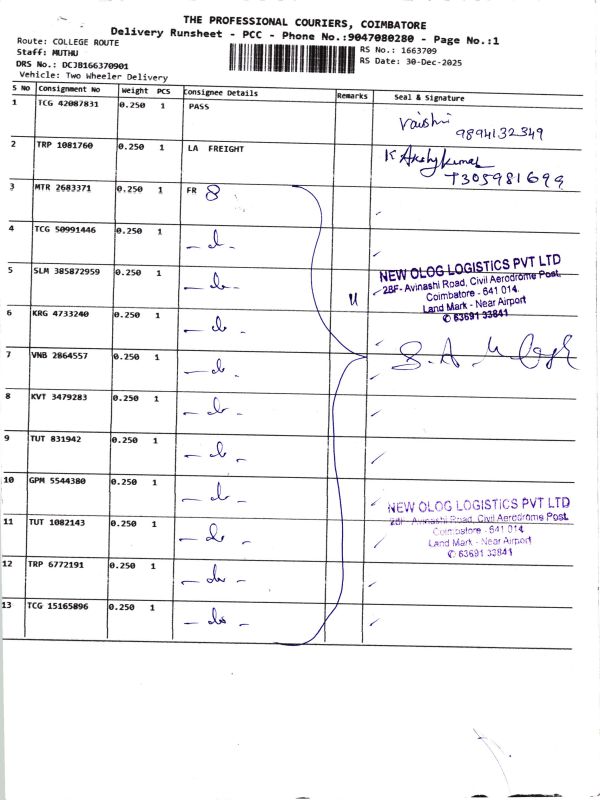 THE PROFESSIONAL COURIERS, COIMBATORE
Delivery Runsheet - PCC - Phone No.:9047080280 - Page No.:1
Route: COLLEGE ROUTE
Staff: MUTHU
DRS No.: DCJB166370901
Vehicle: Two Wheeler Delivery
RS No.: 1663709
RS Date: 30-Dec-2025
S No Consignment No Weight PCS Consignee Details Remarks Seal & Signature
1 TCG 42087831 0.250 1 PASS
Vaishni
9894132349
2 TRP 1081760 0.250 1 LA FREIGHT
K Akshykumar
7305981699
3 MTR 2683371 0.250 1 FR 8
4 TCG 50991446 0.250 1 - do -
5 SLM 385872959 0.250 1 - do -
NEW OLOG LOGISTICS PVT LTD
28F- Avinashi Road, Civil Aerodrome Post,
Coimbatore - 641 014.
Land Mark - Near Airport
✆ 63691 33841
6 KRG 4733240 0.250 1 - do -
7 VNB 2864557 0.250 1 - do -
8 KVT 3479283 0.250 1 - do -
9 TUT 831942 0.250 1 - do -
10 GPM 5544380 0.250 1 - do -
NEW OLOG LOGISTICS PVT LTD
28F- Avinashi Road, Civil Aerodrome Post,
Coimbatore - 641 014.
Land Mark - Near Airport
✆ 63691 33841
11 TUT 1082143 0.250 1 - do -
12 TRP 6772191 0.250 1 - do -
13 TCG 15165896 0.250 1 - do -